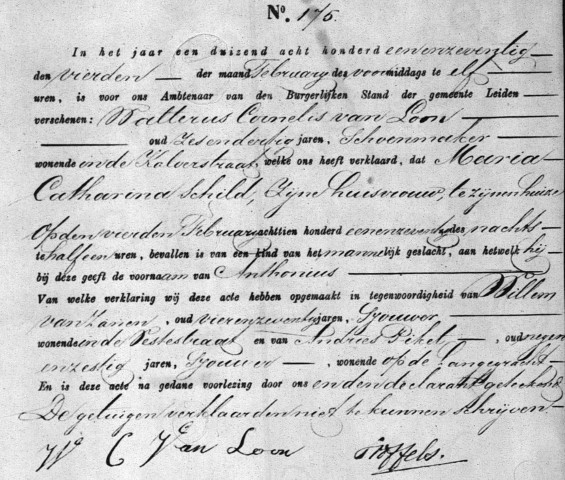 No. 175.
In het jaar een duizend acht honderd eenenzeventig
den vierden der maand February des voormiddags te elf
uren, is voor ons Ambtenaar van den Burgerlijken Stand der gemeente Leiden
verschenen: Walterus Cornelis van Loon
oud zesendertig jaren, Schoenmaker
wonende in de Kalverstraat, welke ons heeft verklaard, dat Maria
Catharina Schild, zijne huisvrouw, te zijnen huize
op den vierden February achttien honderd eenenzeventig des nachts
te half een uren, bevallen is van een kind van het mannelijk geslacht, aan hetwelk hij
bij deze geeft de voornaam van Anthonius
Van welke verklaring wij deze acte hebben opgemaakt in tegenwoordigheid van Willem
van Zanen, oud vierenzeventig jaren, Trouwer
wonende in de Vestestraat en van Andries Pikel, oud negen
enzestig jaren, Trouwer, wonende op de Langegracht
En is deze acte na gedane voorlezing door ons en den declarant geteekend
De getuigen verklaarden niet te kunnen schrijven
W C Van Loon Stoffels.